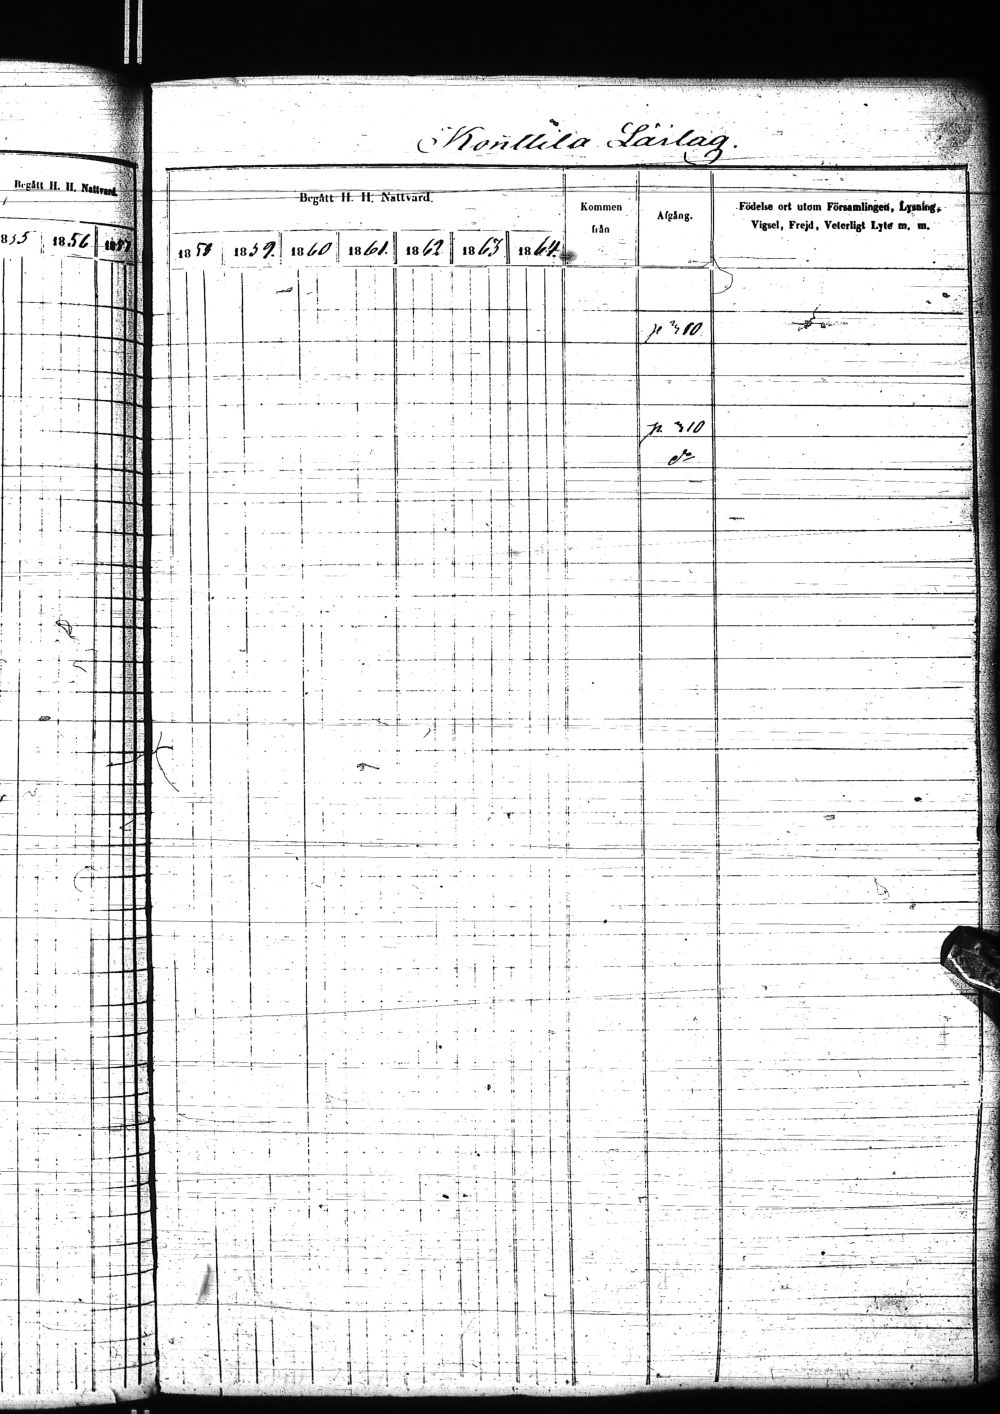 Konttila Läslag.
Begått H. H. Nattvard.
1855 1856 1857
Begått H. H. Nattvard.
Kommen från
Afgång.
Födelse ort utom Församlingen, Lysning,
Vigsel, Frejd, Veterligt Lyte m. m.
1858 1859. 1860 1861. 1862 1863 1864.
p. 310
p. 310
do